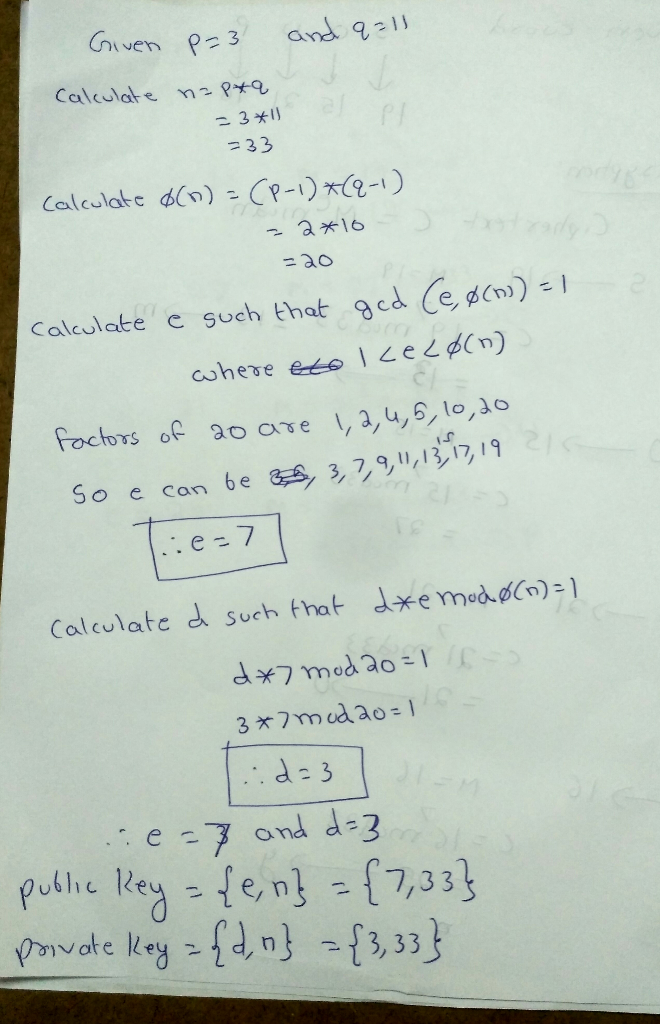 Given p=3 and q=11
Calculate n=p*q
=3*11
=33
Calculate ϕ(n) = (p-1)*(q-1)
= 2*10
=20
Calculate e such that gcd (e,ϕ(n))=1
where 1<e<ϕ(n)
factors of 20 are 1,2,4,5,10,20
So e can be 3,7,9,11,13,15,17,19
∴e=7
Calculate d such that d*e mod ϕ(n)=1
d*7 mod 20=1
3*7 mod 20=1
∴d=3
∴e=7 and d=3
public key = {e,n} = {7,33}
private key = {d,n} = {3,33}